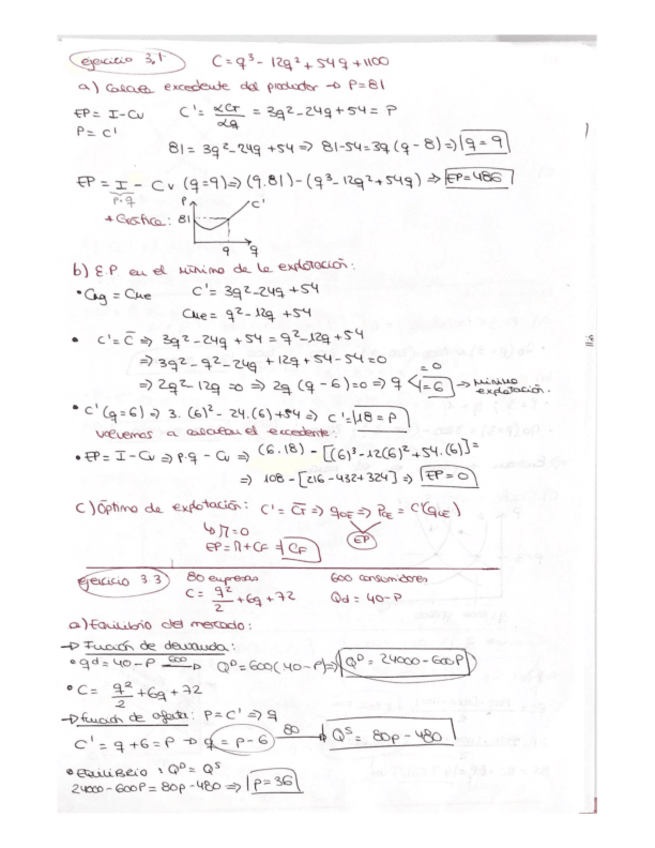 ejercicio 3,1 C = q³ - 12q² + 54q + 1100
a) Calcular excedente del productor → P=81
EP = I - Cv C' = αCT/αq = 3q² - 24q + 54 = P
P = C'
81 = 3q² - 24q + 54 ⇒ 81-54 = 3q (q - 8) ⇒ q = 9
EP = I - Cv (q=9) ⇒ (9.81) - (q³ - 12q² + 54q) ⇒ EP = 486
P.q
+ Gráfica: P 81 C' 9 q
b) E.P. en el mínimo de la explotación:
• Cmg = CMe C' = 3q² - 24q + 54
CMe = q² - 12q + 54
• C' = C̅ ⇒ 3q² - 24q + 54 = q² - 12q + 54
⇒ 3q² - q² - 24q + 12q + 54 - 54 = 0
⇒ 2q² - 12q = 0 ⇒ 2q (q - 6) = 0 ⇒ q < = 0 = 6 → mínimo explotación.
• C' (q=6) ⇒ 3. (6)² - 24. (6) + 54 ⇒ C' = 18 = P
volvemos a calcular el excedente:
• EP = I - Cv ⇒ p.q - Cv ⇒ (6.18) - [(6)³ - 12(6)² + 54.(6)] =
⇒ 108 - [216 - 432 + 324] ⇒ EP = 0
C) Óptimo de explotación: C' = C̅T ⇒ qOE ⇒ POE = C'(qOE)
↳ Π = 0 EP
EP = Π + CF = CF
ejercicio 3.3 80 empresas 600 consumidores
C = q²/2 + 6q + 72 Qd = 40 - P
a) Equilibrio del mercado:
→ Función de demanda:
• qd = 40 - P 600 → Q^D = 600 (40 - P) ⇒ Q^D = 24000 - 600P
• C = q²/2 + 6q + 72
→ Función de oferta: P = C' ⇒ q
C' = q + 6 = P → q = P - 6 80 → Q^S = 80p - 480
• Equilibrio: Q^D = Q^S
24000 - 600P = 80p - 480 ⇒ P = 36